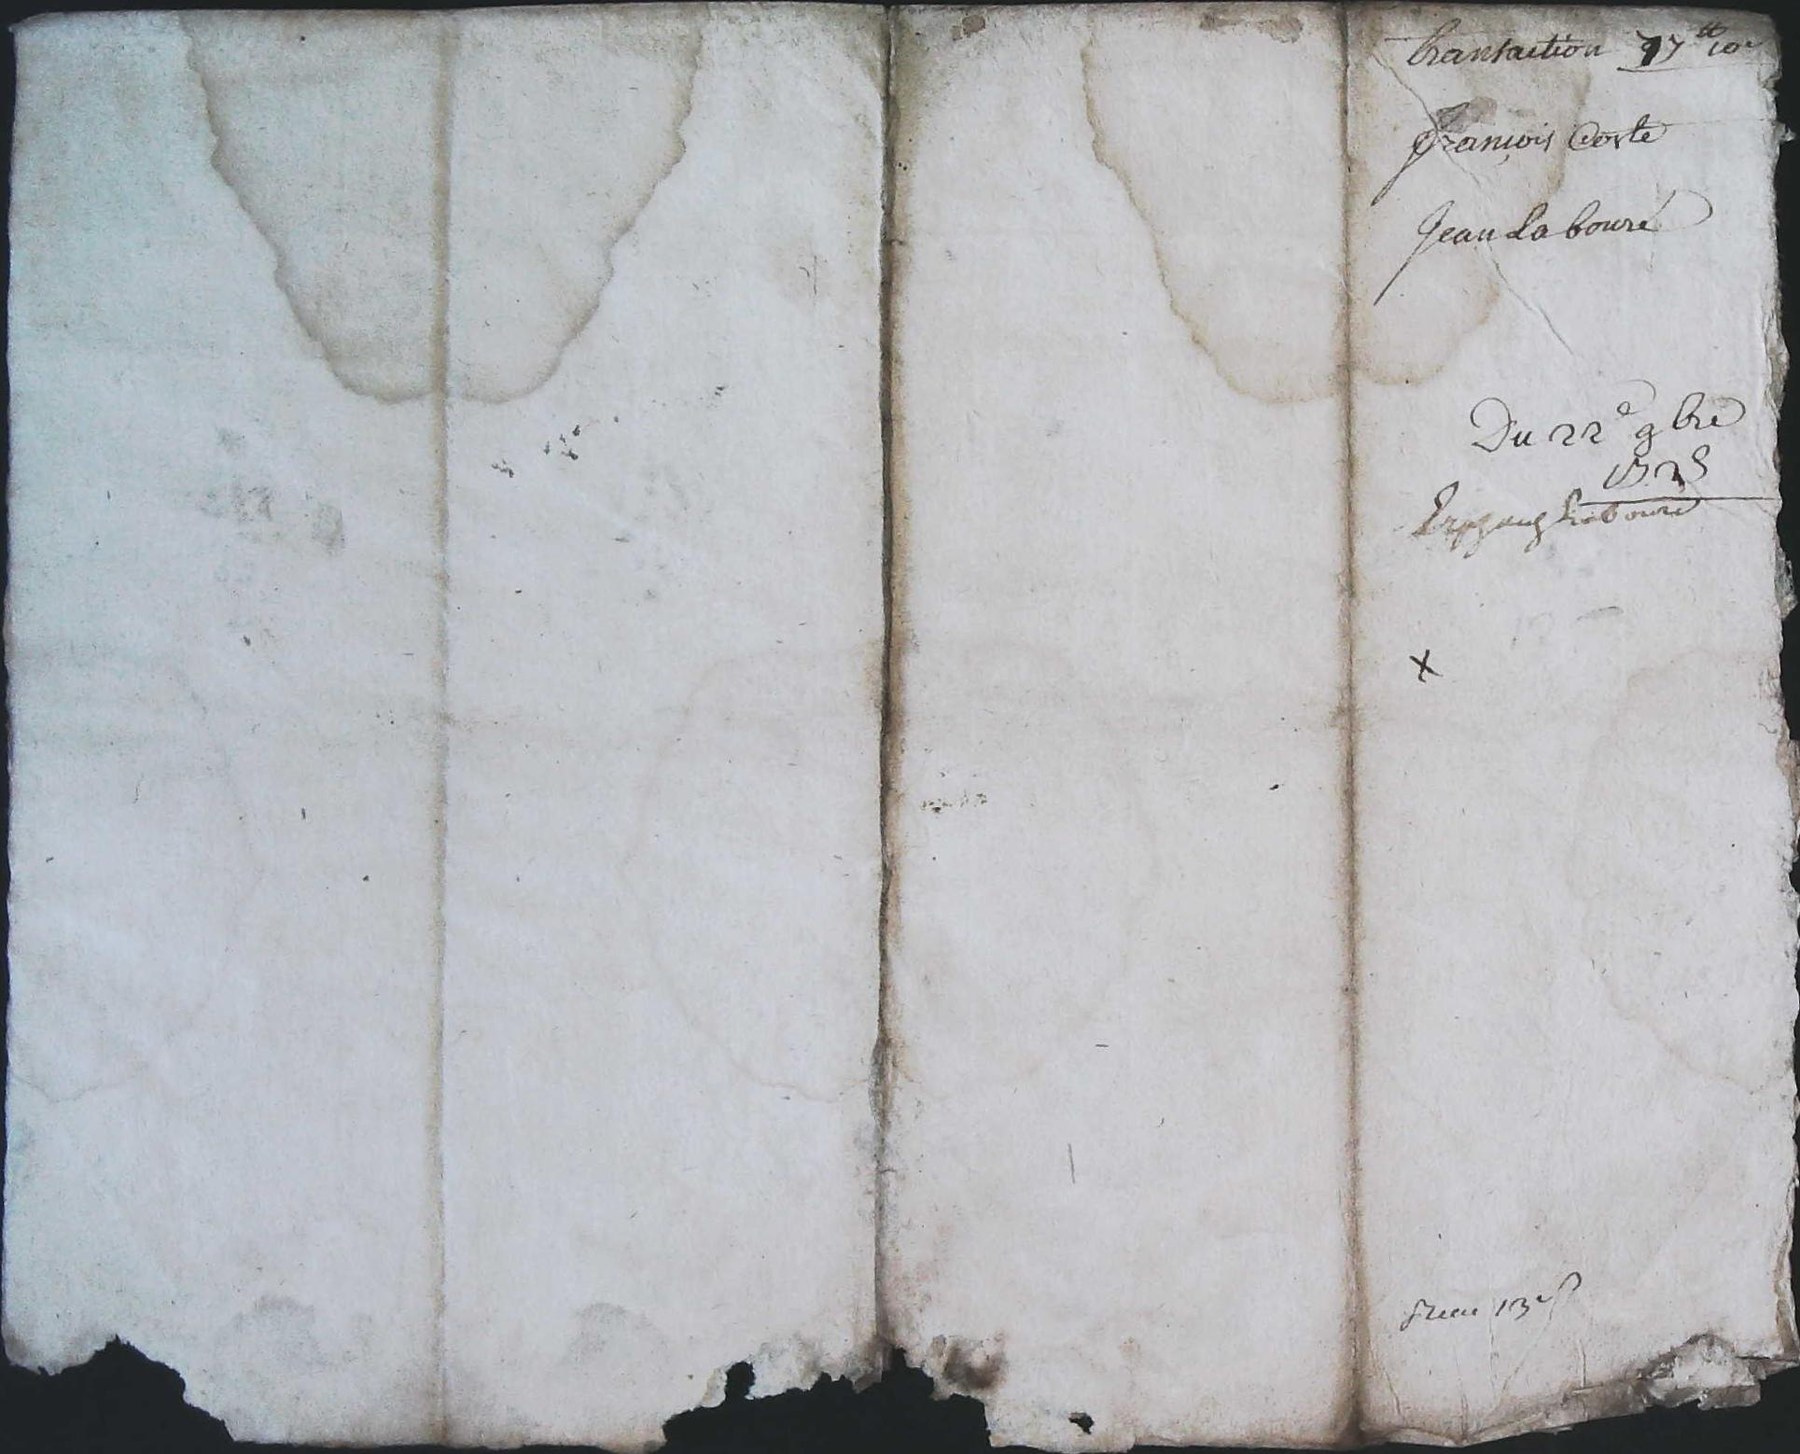 transaction 77 ₶ 10ˢ
françois Coste
Jean Labouré
Du 22ᵉ 9bre
1725
Labouré
Receu 13ˢ